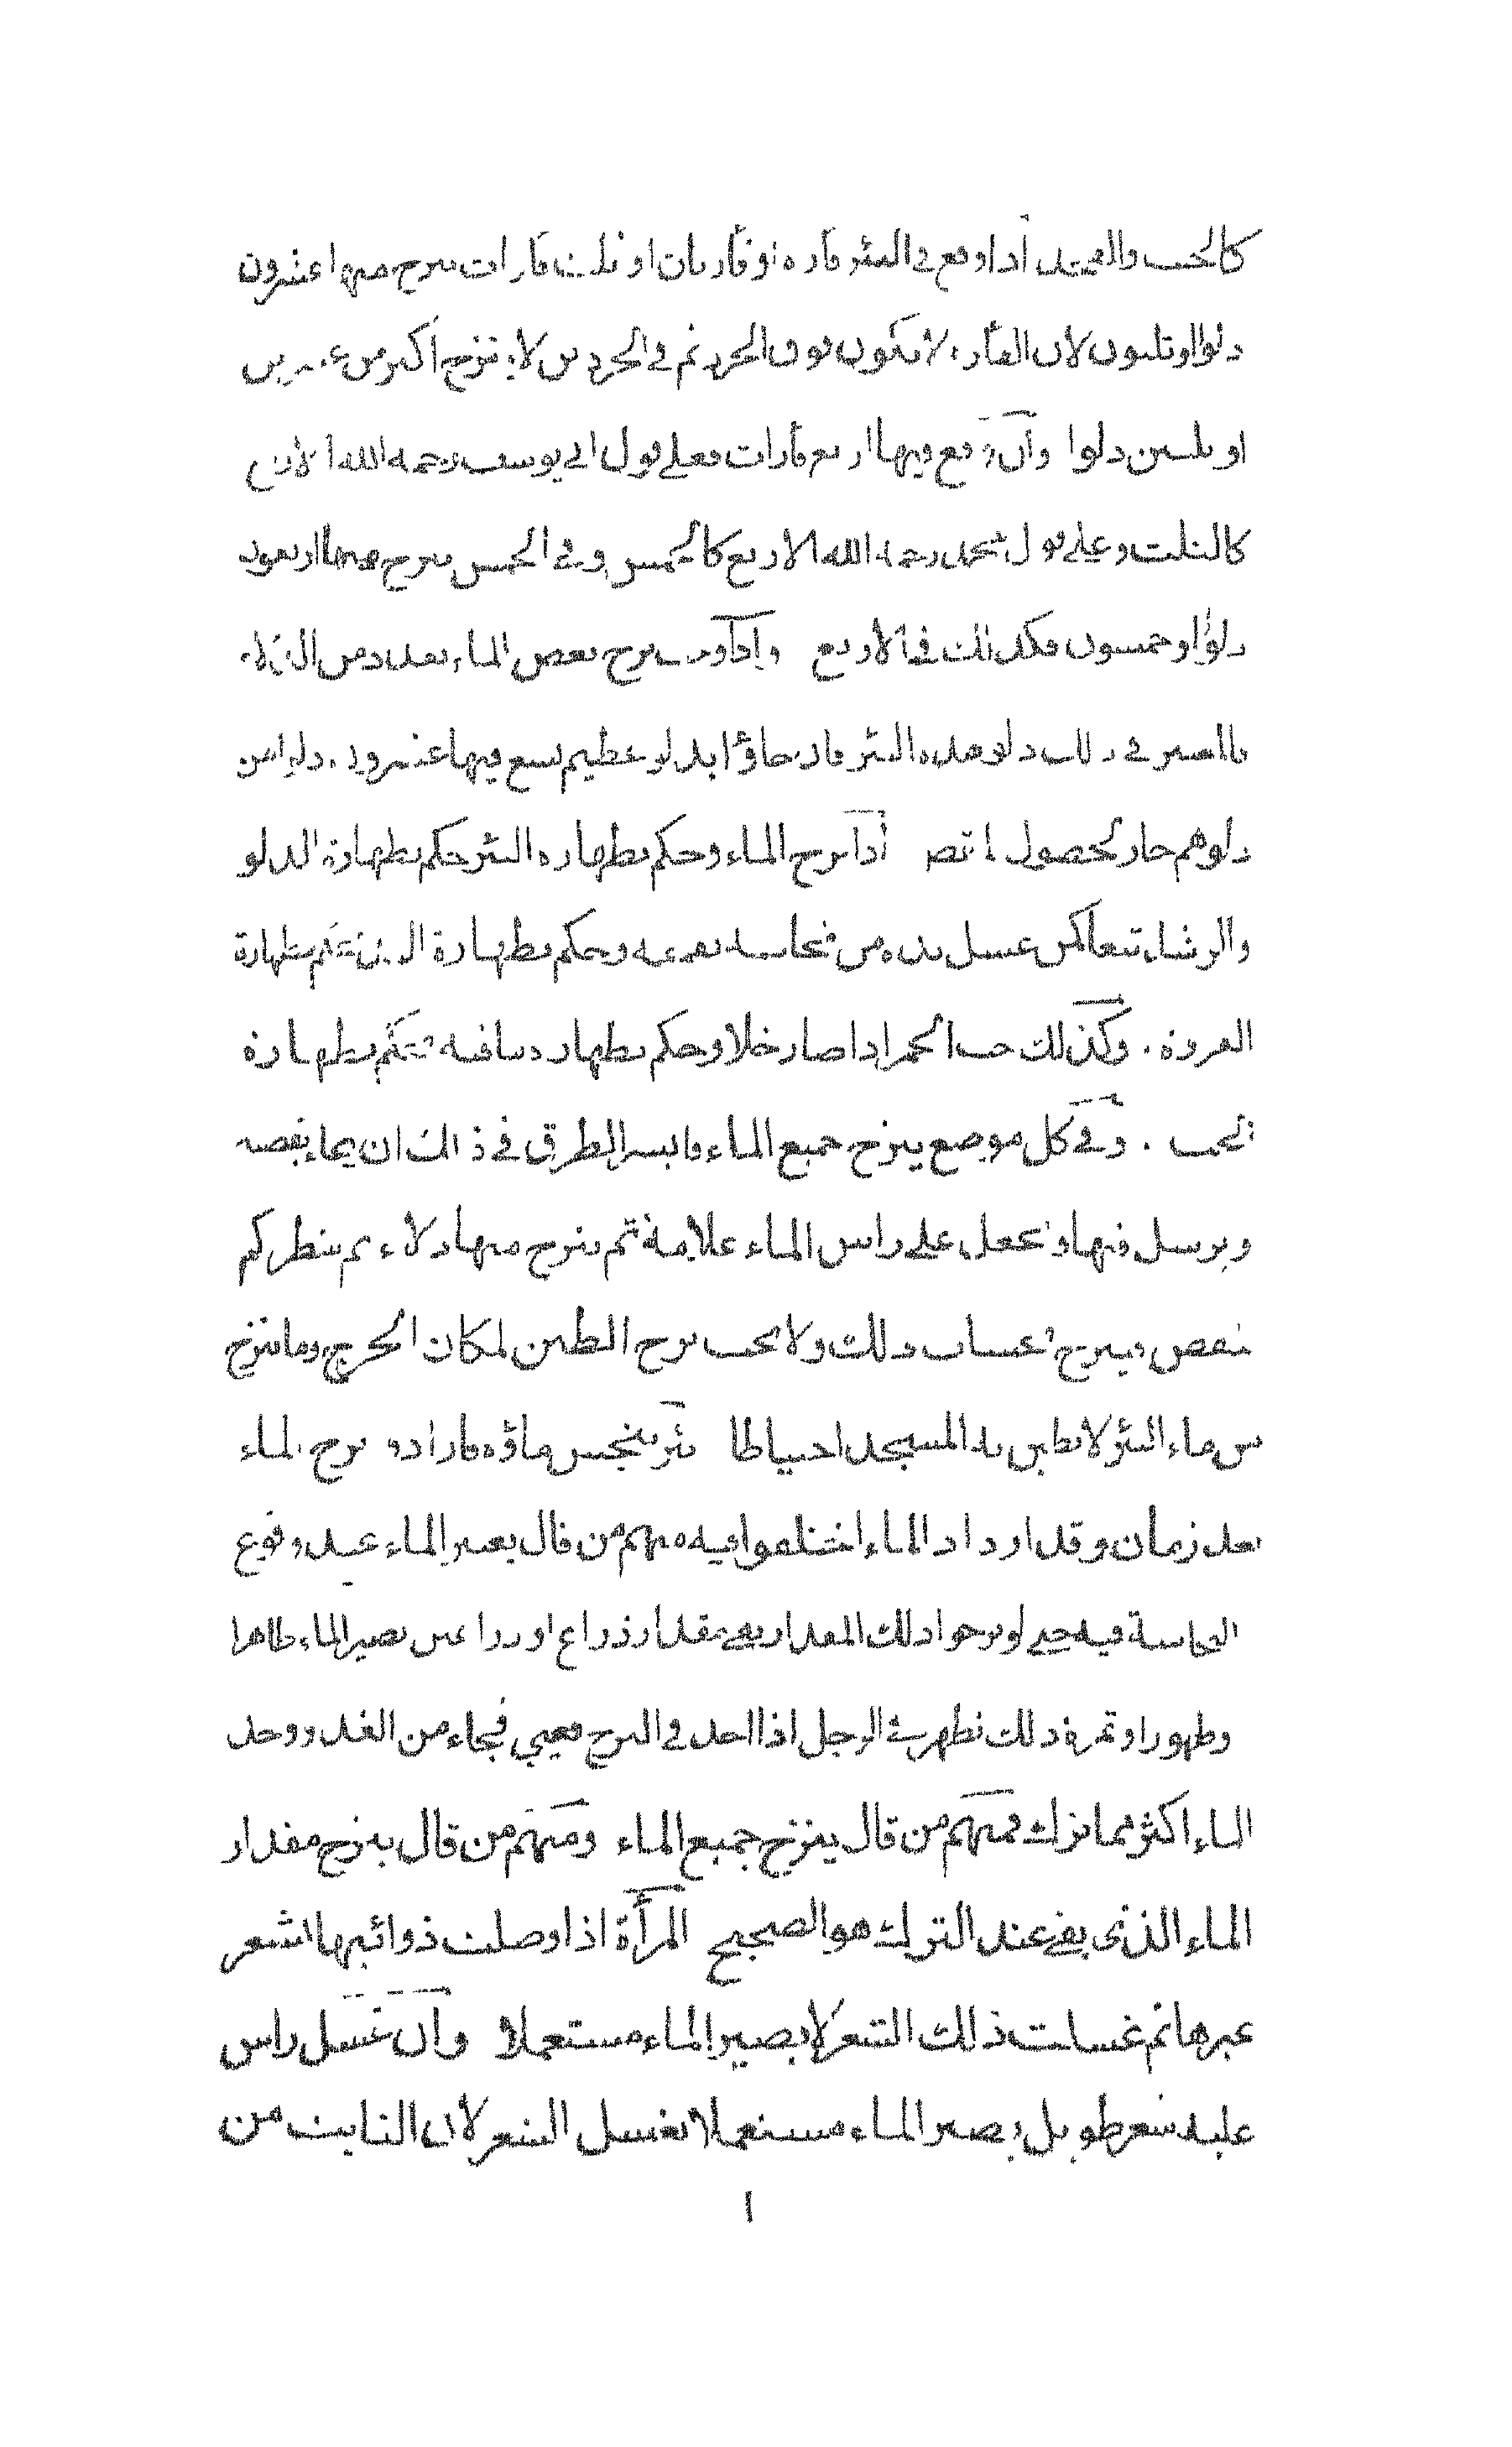 كالحب والفيتل اذا وقع في البئر فارة او فأرتان او ثلث فارات ينزح منها عشرون
دلوا او ثلثون لان الفأرة لا تكون فوق الجرذ ثم في الجرذين لا ينزح اكثر من عشرين
او ثلثين دلوا وان وقع فيها اربع فأرات فعلى قول ابي يوسف رحمه الله الاربع
كالثلث وعلى قول محمد رحمه الله الاربع كالخمس وفي الخمس ينزح منها اربعون
دلوا او خمسون فكذلك في الاربع واذا وجب نزح بعض الماء بعدد من الدلاء
فالمعتبر في ذلك دلو هذه البئر فان جاؤا بدلو عظيم يسع فيها عشرون دلوا من
دلوهم جاز لحصول اذا نزح الماء وحكم بطهارة البئر حكم بطهارة الدلو
والرشاء تبعا كمن غسل يده من نجاسة وحكم بطهارة اليد يحكم بطهارة
العروة . وكذلك حب الخمر اذا صار خلا وحكم بطهارة ما فيه يحكم بطهارة
الحب . وفي كل موضع ينزح جميع الماء فايسر الطرق في ذلك ان يجاء بقصبة
ويرسل فيها ويجعل على راس الماء علامة ثم ينزح منها دلاء ثم ينظر كم
ينقص فينزح بحساب ذلك ولا يجب نزح الطين لمكان الحرج وما ينزح
من ماء البئر لا يطين به المسجد احتياطا بئر يتنجس ماؤه فارادوا نزح الماء
بعد زمان وقد ازداد الماء اختلفوا فيه منهم من قال يعتبر الماء عند وقوع
النجاسة فيه حتى لو نزحوا ذلك المقدار بقي مقدار ذراع او ذراعين يصير الماء طاهرا
وطهورا وثمرة ذلك تظهر في الرجل اذا اخذ في النزح فعيي فجاء من الغد ووجد
الماء اكثر مما ترك فمنهم من قال ينزح جميع الماء ومنهم من قال ينزح مقدار
الماء الذي بقي عند الترك هو الصحيح المرأة اذا وصلت ذوائبها بشعر
غيرها ثم غسلت ذلك الشعر لا يصير الماء مستعملا وان غسل راس
عليه شعر طويل يصير الماء مستعملا بغسل الشعر لان النابت من
١